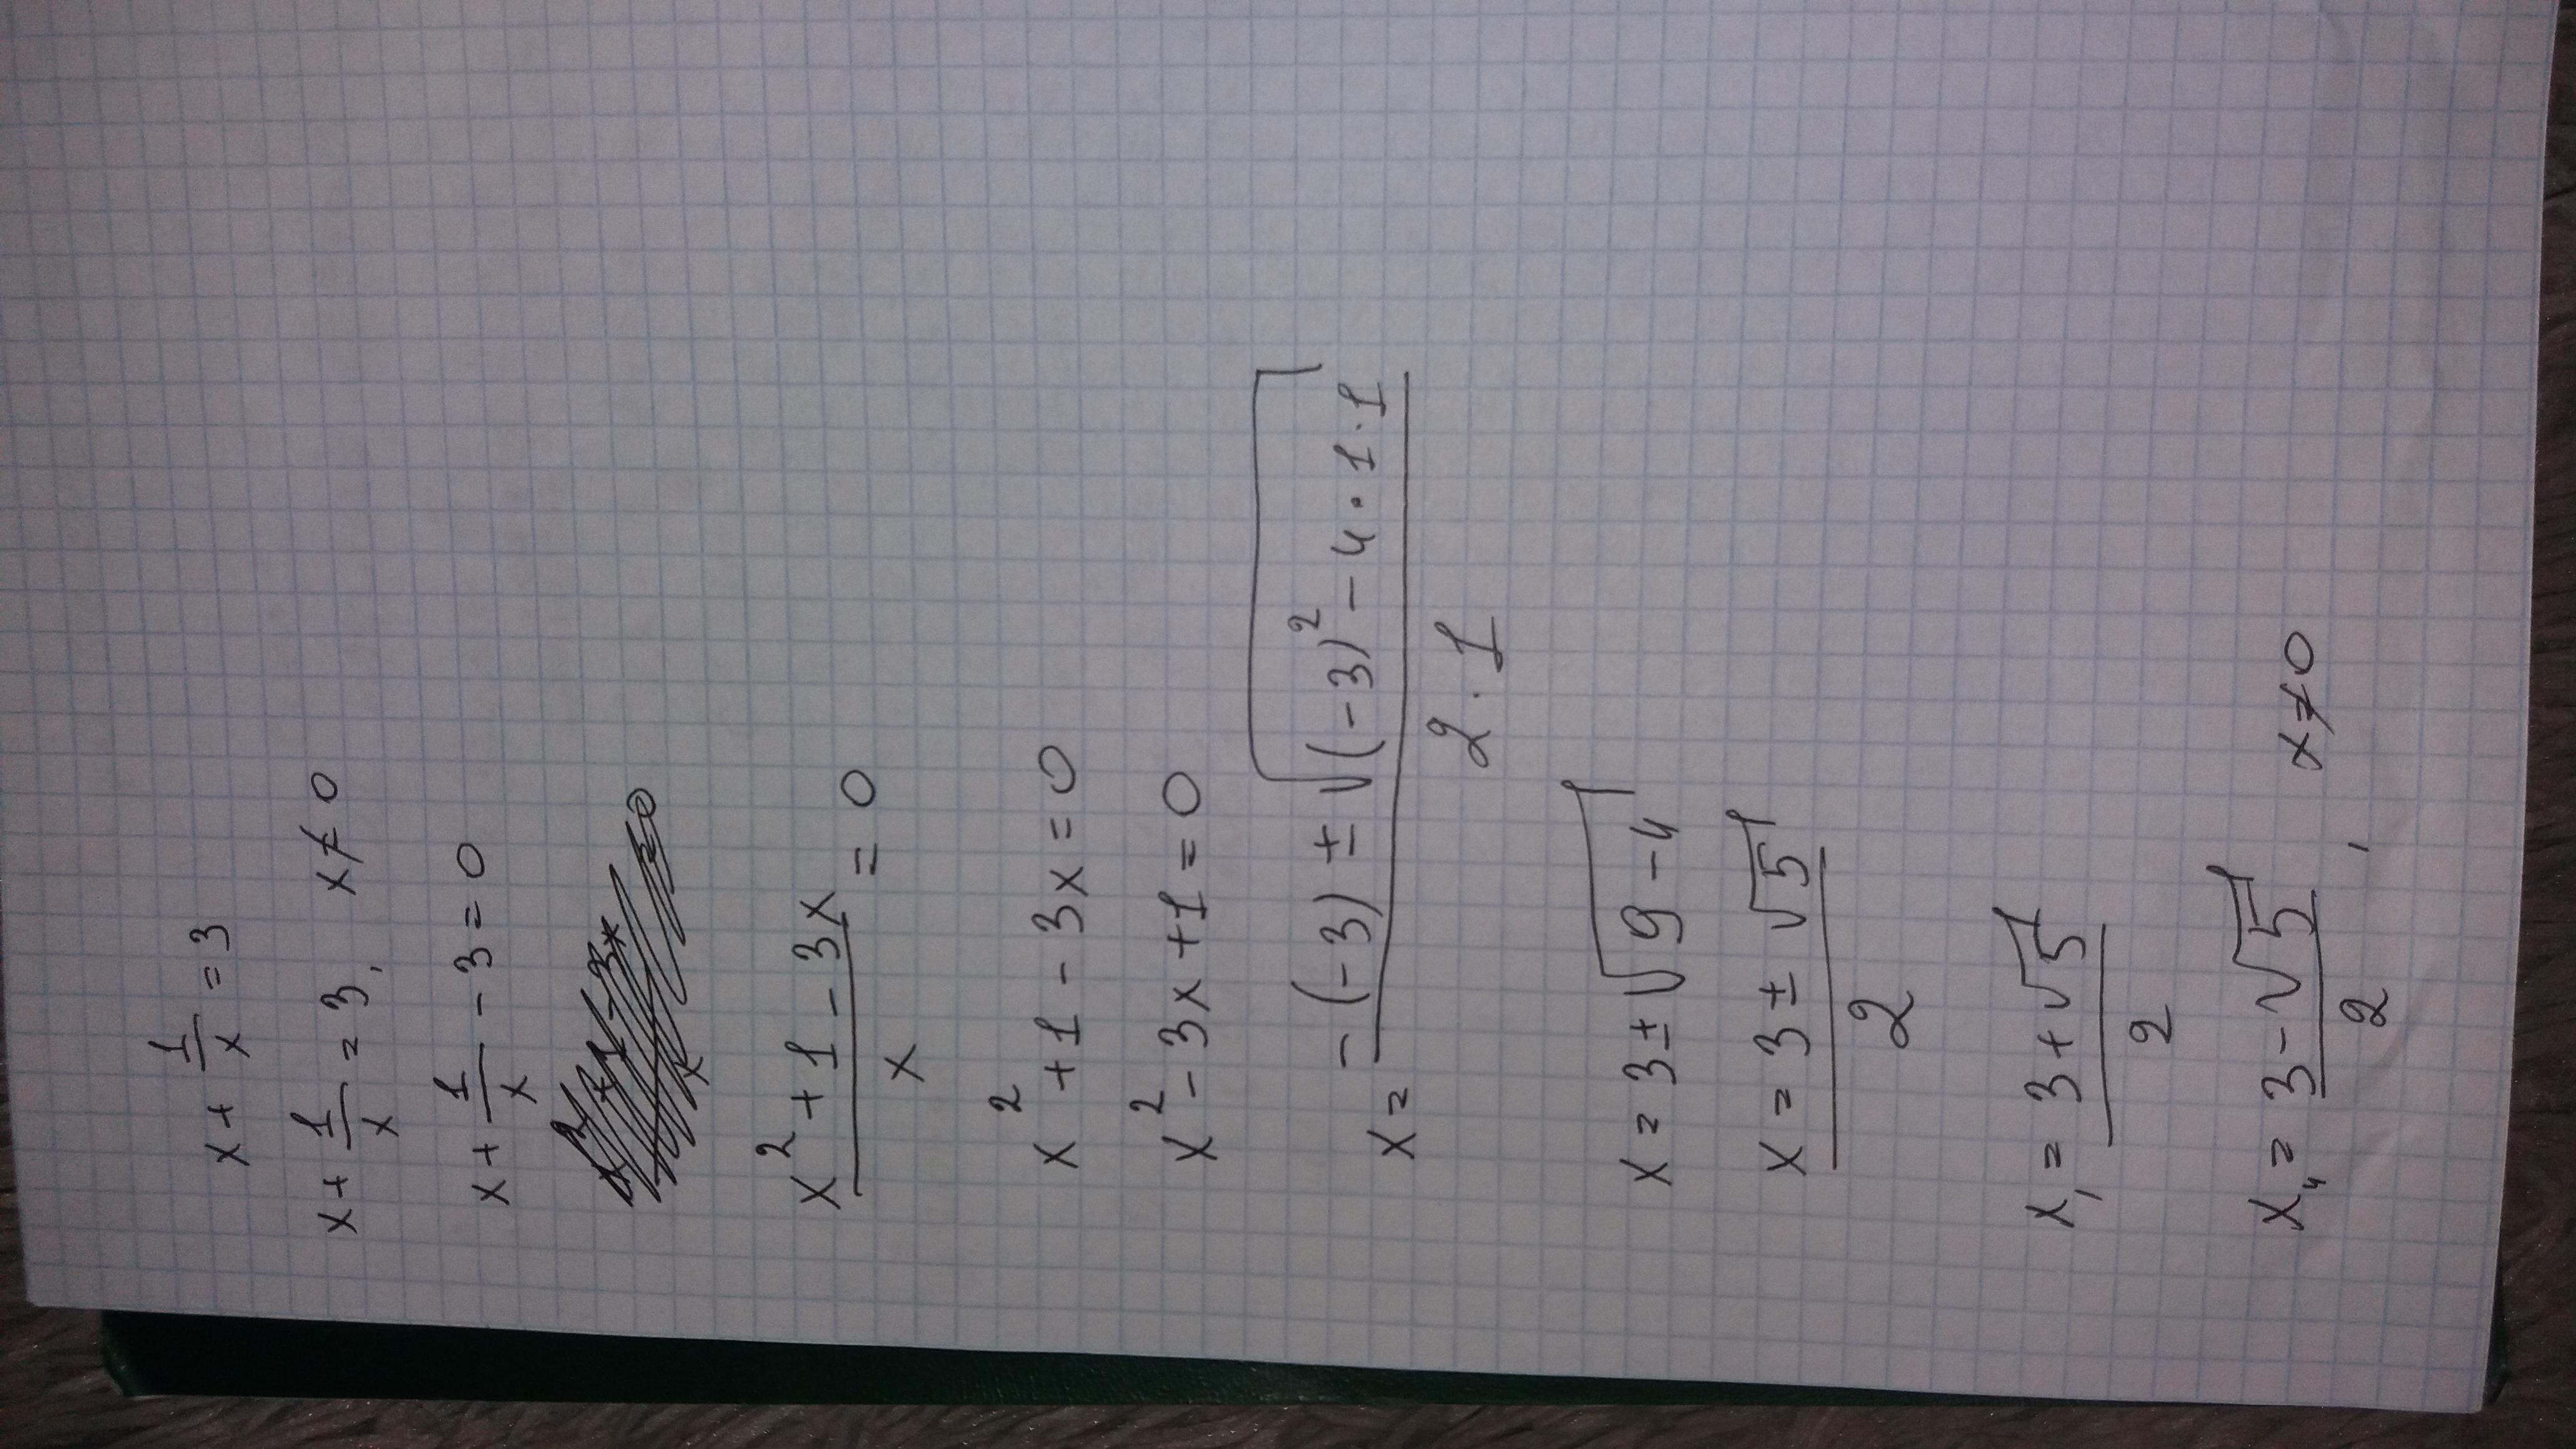 x + 1/x = 3
x + 1/x = 3, x ≠ 0
x + 1/x - 3 = 0
(x² + 1 - 3x)/x = 0
x² + 1 - 3x = 0
x² - 3x + 1 = 0
x = (-(-3) ± √((-3)² - 4 · 1 · 1))/(2 · 1)
x = 3 ± √(9 - 4)
x = (3 ± √5)/2
x₁ = (3 + √5)/2
x₁₁ = (3 - √5)/2, x ≠ 0